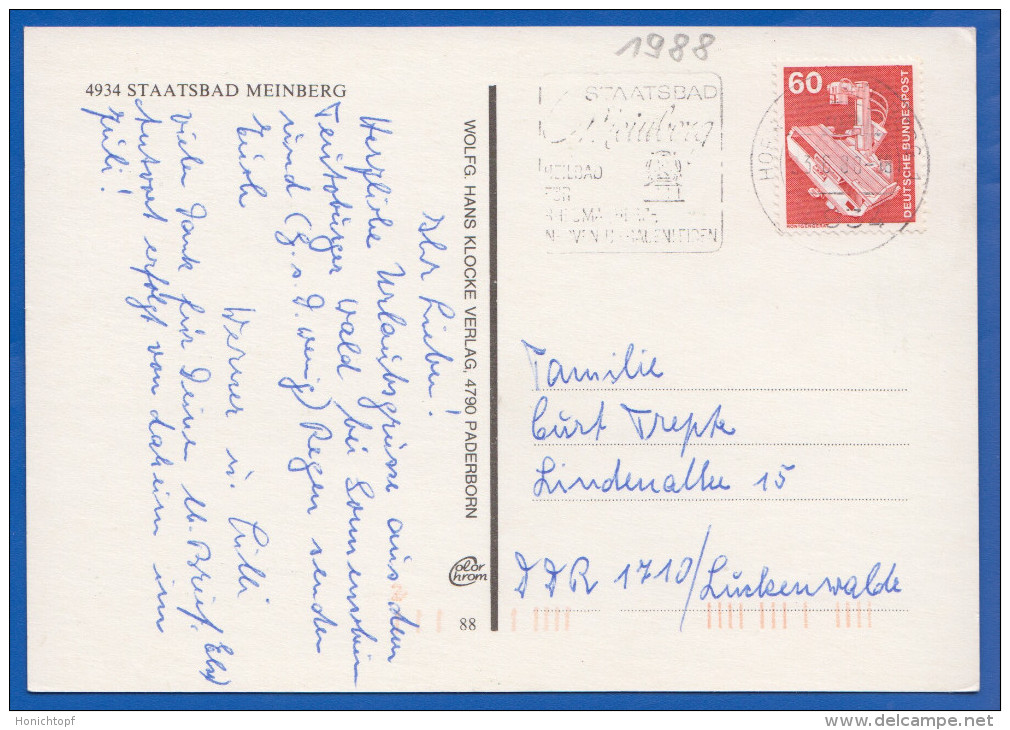 1988
4934 STAATSBAD MEINBERG
STAATSBAD
Meinberg
HEILBAD
FÜR
NERVEN U.
60
DEUTSCHE BUNDESPOST
WOLFG. HANS KLOCKE VERLAG, 4790 PADERBORN
Color
Chrom
88
Ihr Lieben!
Herzliche Urlaubsgrüsse aus dem
Teutoburger Wald bei Sonnenschein
und (G.s.D. wenig) Regen senden
Euch
Werner u. Cilli
Vielen Dank für Deinen lb. Brief,
Antwort erfolgt von daheim im
Juli!
Familie
Curt Trepte
Lindenallee 15
DDR 1710/Luckenwalde
Honichtopf
www.delcampe.net